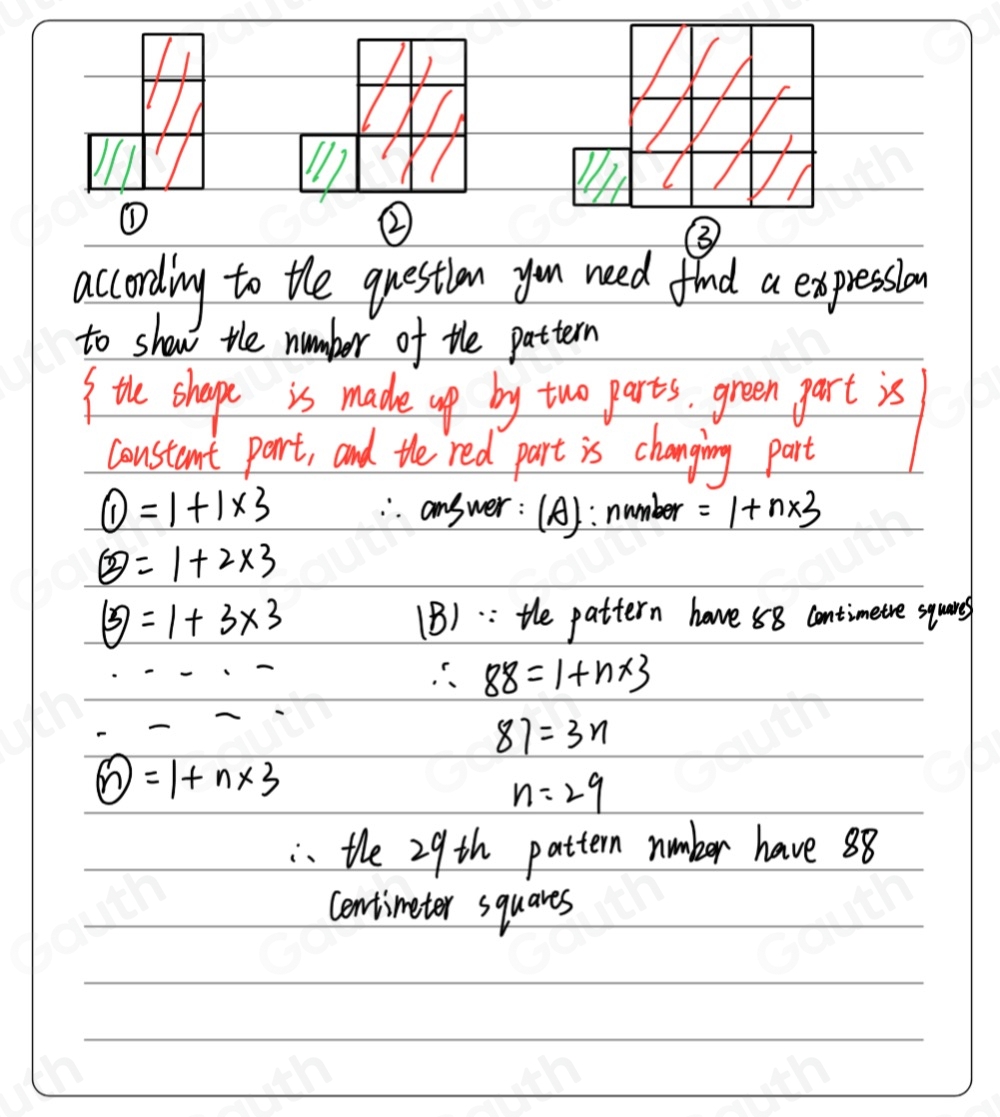 ① ② ③
according to the question you need find a expression
to show the number of the pattern
{ the shape is made up by two parts. green part is }
constant part, and the red part is changing part
① = 1 + 1 × 3 ∴ answer: (A): number = 1 + n × 3
② = 1 + 2 × 3
③ = 1 + 3 × 3 (B) ∵ the pattern have 88 centimetre squares
∴ 88 = 1 + n × 3
87 = 3n
ⓝ = 1 + n × 3
n = 29
∴ the 29th pattern number have 88
centimeter squares
Gauth